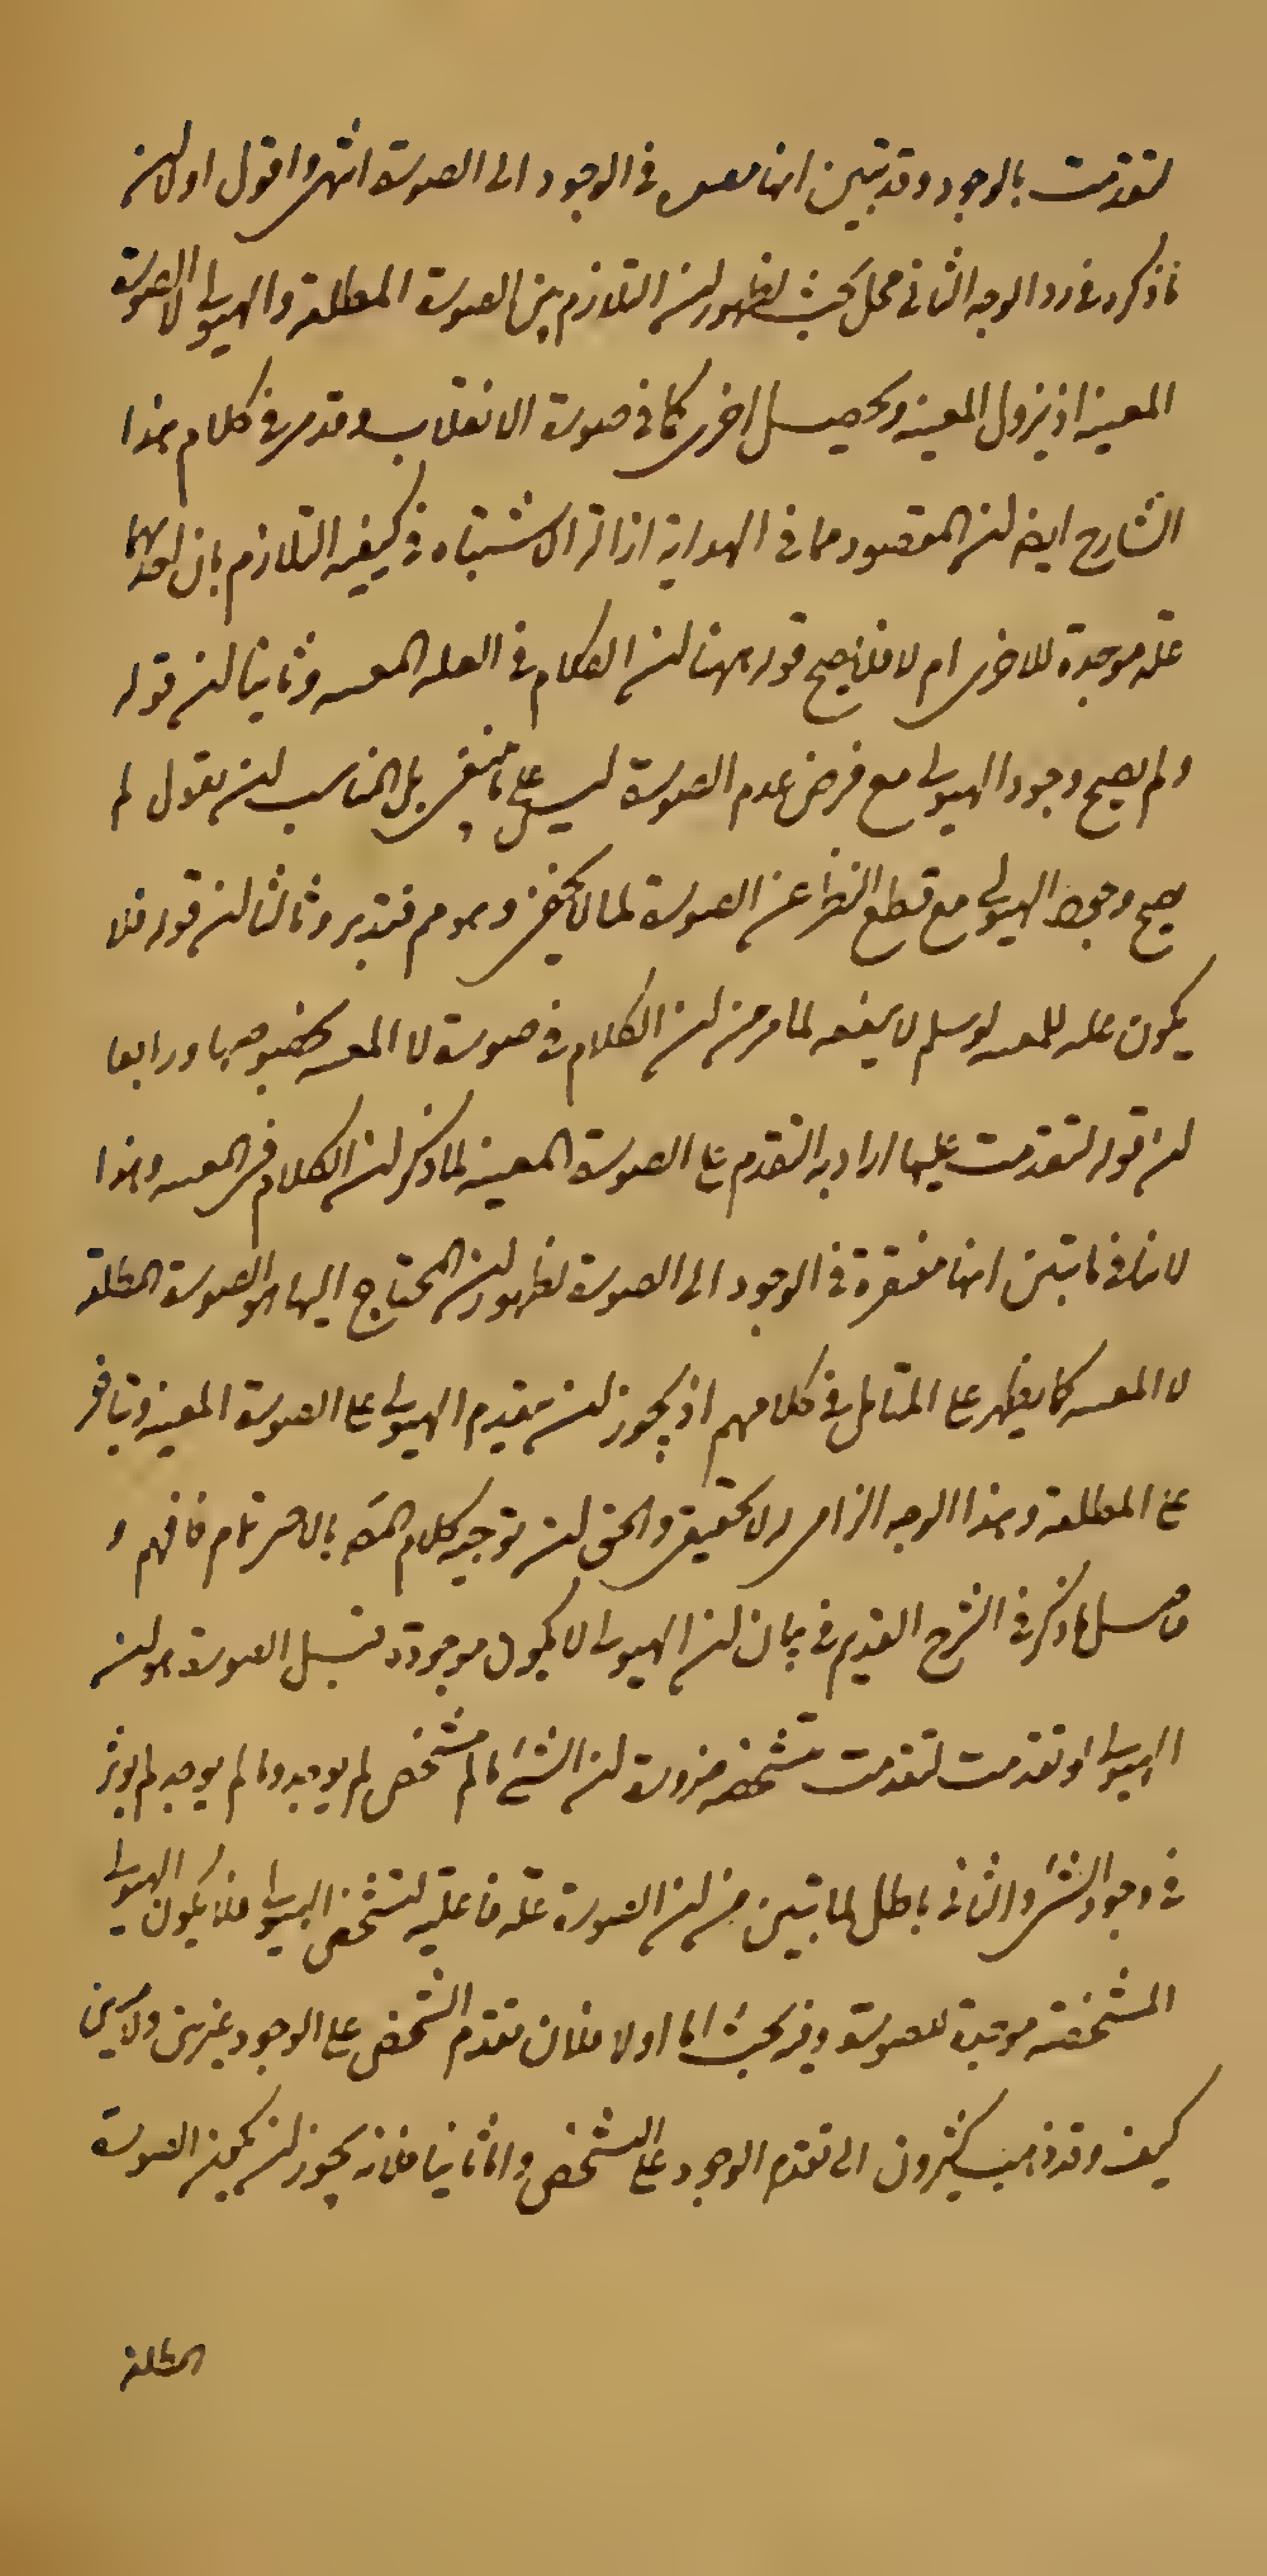 لتقدمت بالوجود وقد تبين انها مفتقرة في الوجود الى الصورة انتهى واقول اولا ان
ما ذكره في رد الوجه الثاني محل بحث لظهور ان التلازم بين الصورة المطلقة والهيولى لا الصورة
المعينة اذ يزول المعينة ويحصل اخرى كما في صورة الانقلاب وقد مر في كلام هذا
الشارح ايضا ان المقصود مما في الهداية ازالة الاشتباه في كيفية التلازم بان احدهما
علة موجدة للاخرى ام لا فلا يصح قوله ههنا ان الكلام في العلة المعينة وثانيا ان قوله
ولم يصح وجود الهيولى مع فرض عدم الصورة ليس على ما ينبغي بل المناسب ان يقول لم
يصح وجود الهيولى مع قطع النظر عن الصورة لما لا يخفى وهو م فتدبر وثالثا ان قوله فلا
يكون علة للمعينة لو سلم لا ينفعه لما مر من ان الكلام في صورة لا المعينة بخصوصها ورابعا
ان قوله لتقدمت عليها اراد به التقدم على الصورة المعينة لما ذكر ان الكلام في المعينة وهذا
لا ينافي ما تبين انها مفتقرة في الوجود الى الصورة لظهور ان المحتاج اليها هو الصورة المطلقة
لا المعينة كما يظهر على المتامل في كلامهم اذ يجوز ان يتقدم الهيولى على الصورة المعينة ويتاخر
عن المطلقة وهذا الوجه الزامي لا تحقيقي والحق ان توجيه كلام المص بالاخر تام فافهم و
حاصل ما ذكر في الشرح القديم في بيان ان الهيولى لا يكون موجودة قبل الصورة هو ان
الهيولى لو تقدمت لتقدمت متشخصة ضرورة ان الشئ ما لم يتشخص لم يوجد وما لم يوجد لم يؤثر
في وجود الشئ والثاني باطل لما تبين من ان الصورة علة فاعلية لتشخص الهيولى فلا يكون الهيولى
المتشخصة موجبة للصورة وفيه بحث اما اولا فلان تقدم التشخص على الوجود غير بين ولا مبين
كيف وقد ذهب كثيرون الى تقدم الوجود على التشخص واما ثانيا فلانه يجوز ان يكون الصورة
المطلقة